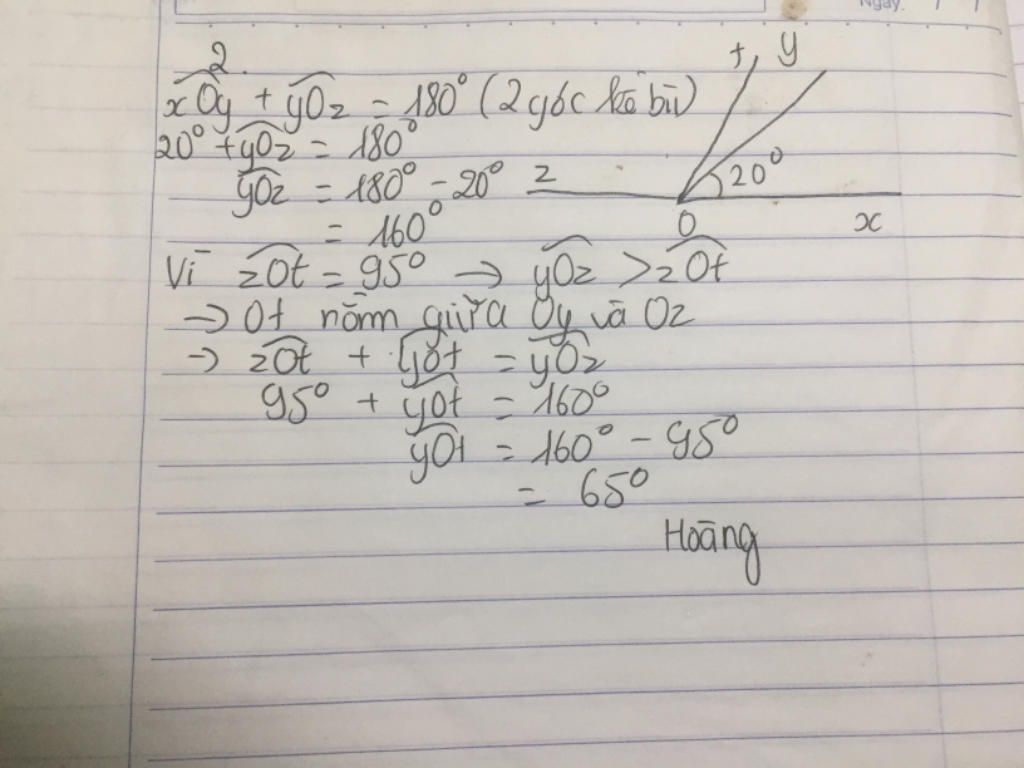 Ngày.
2.
xOy + yOz = 180° (2 góc kề bù)
20° + yOz = 180°
yOz = 180° - 20°
= 160°
t y
z 20°
O x
Vì zOt = 95° → yOz > zOt
→ Ot nằm giữa Oy và Oz
→ zOt + yOt = yOz
95° + yOt = 160°
yOt = 160° - 95°
= 65°
Hoāng